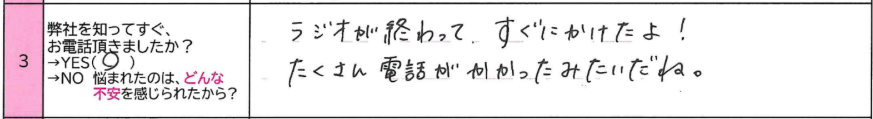 3
弊社を知ってすぐ、
お電話頂きましたか？
→YES(○)
→NO 悩まれたのは、どんな
不安を感じられたから？
ラジオが終わって、すぐにかけたよ！
たくさん電話がかかったみたいだね。